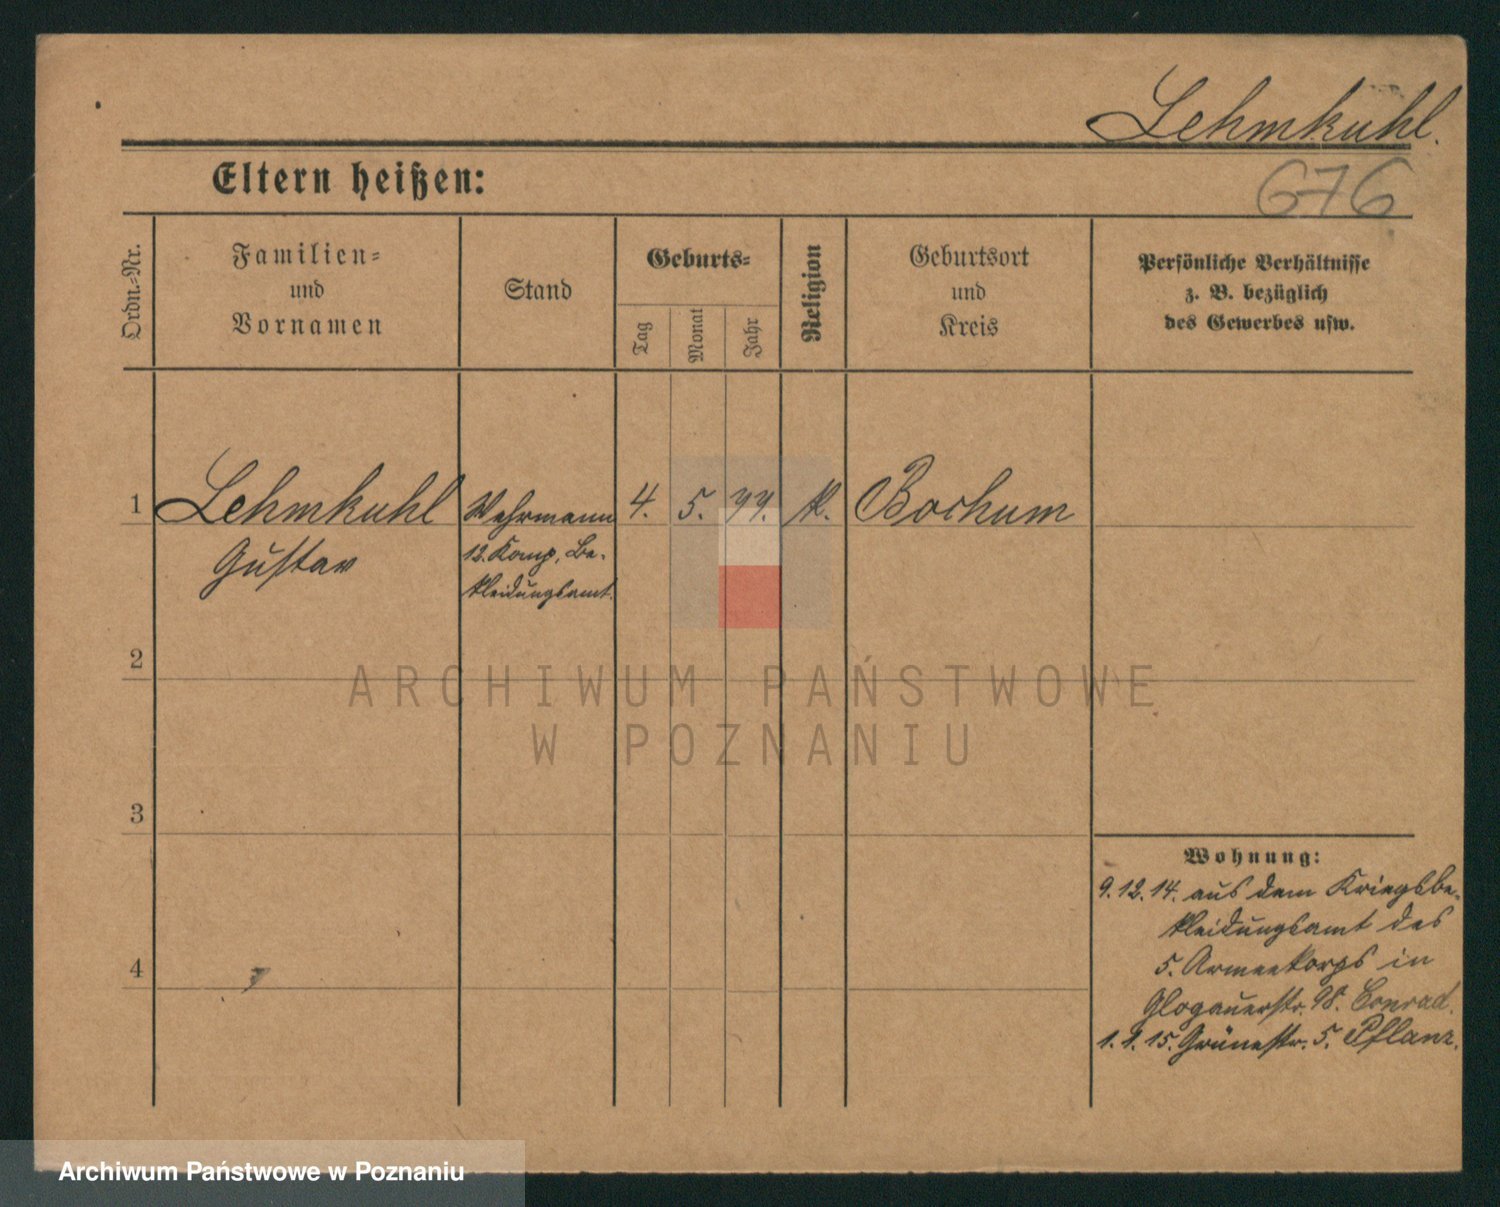 Lehmkuhl.
Eltern heißen:
676
Ordn.-Nr.
Familien-
und
Vornamen
Stand
Geburts-
Tag
Monat
Jahr
Religion
Geburtsort
und
Kreis
Persönliche Verhältnisse
z. B. bezüglich
des Gewerbes usw.
1
Lehmkuhl
Wehrmann
4.
5.
k.
Bochum
Gustav
12. Komp. Be-
kleidungsamt.
2
ARCHIWUM PAŃSTWOWE
W POZNANIU
3
Wohnung:
9.12.14. aus dem Kriegsbe-
kleidungsamt des
5. Armeekorps in
4
Glogauerstr. 98. Conrad.
1.1.15. Grünestr. 5. Pflanz.
Archiwum Państwowe w Poznaniu